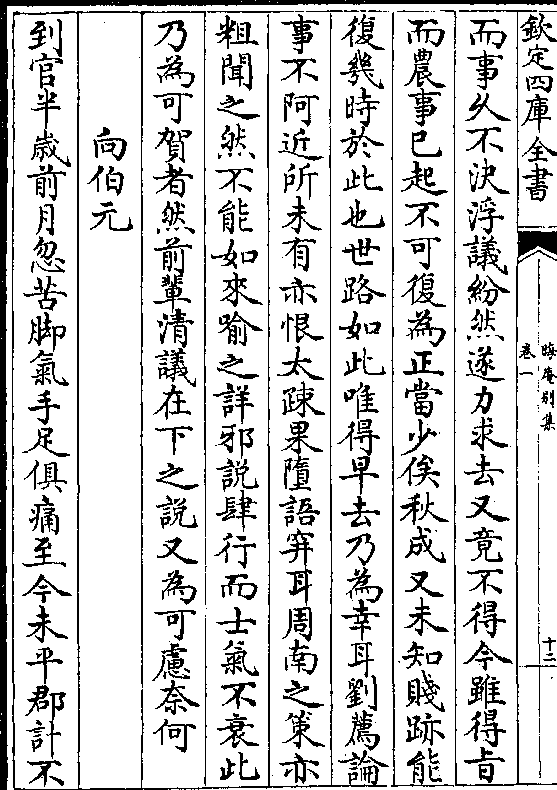 欽定四庫全書
晦庵别集
卷一
十二
而事久不決浮議紛然遂力求去又竟不得今雖得旨
而農事已起不可復為正當少俟秋成又未知賤跡能
復幾時於此也世路如此唯得早去乃為幸耳劉薦論
事不阿近所未有亦恨太疎果墮語穽耳周南之策亦
粗聞之然不能如來喻之詳邪説肆行而士氣不衰此
乃為可賀者然前輩清議在下之説又為可慮奈何
向伯元
到官半歲前月忽苦脚氣手足俱痛至今未平郡計不